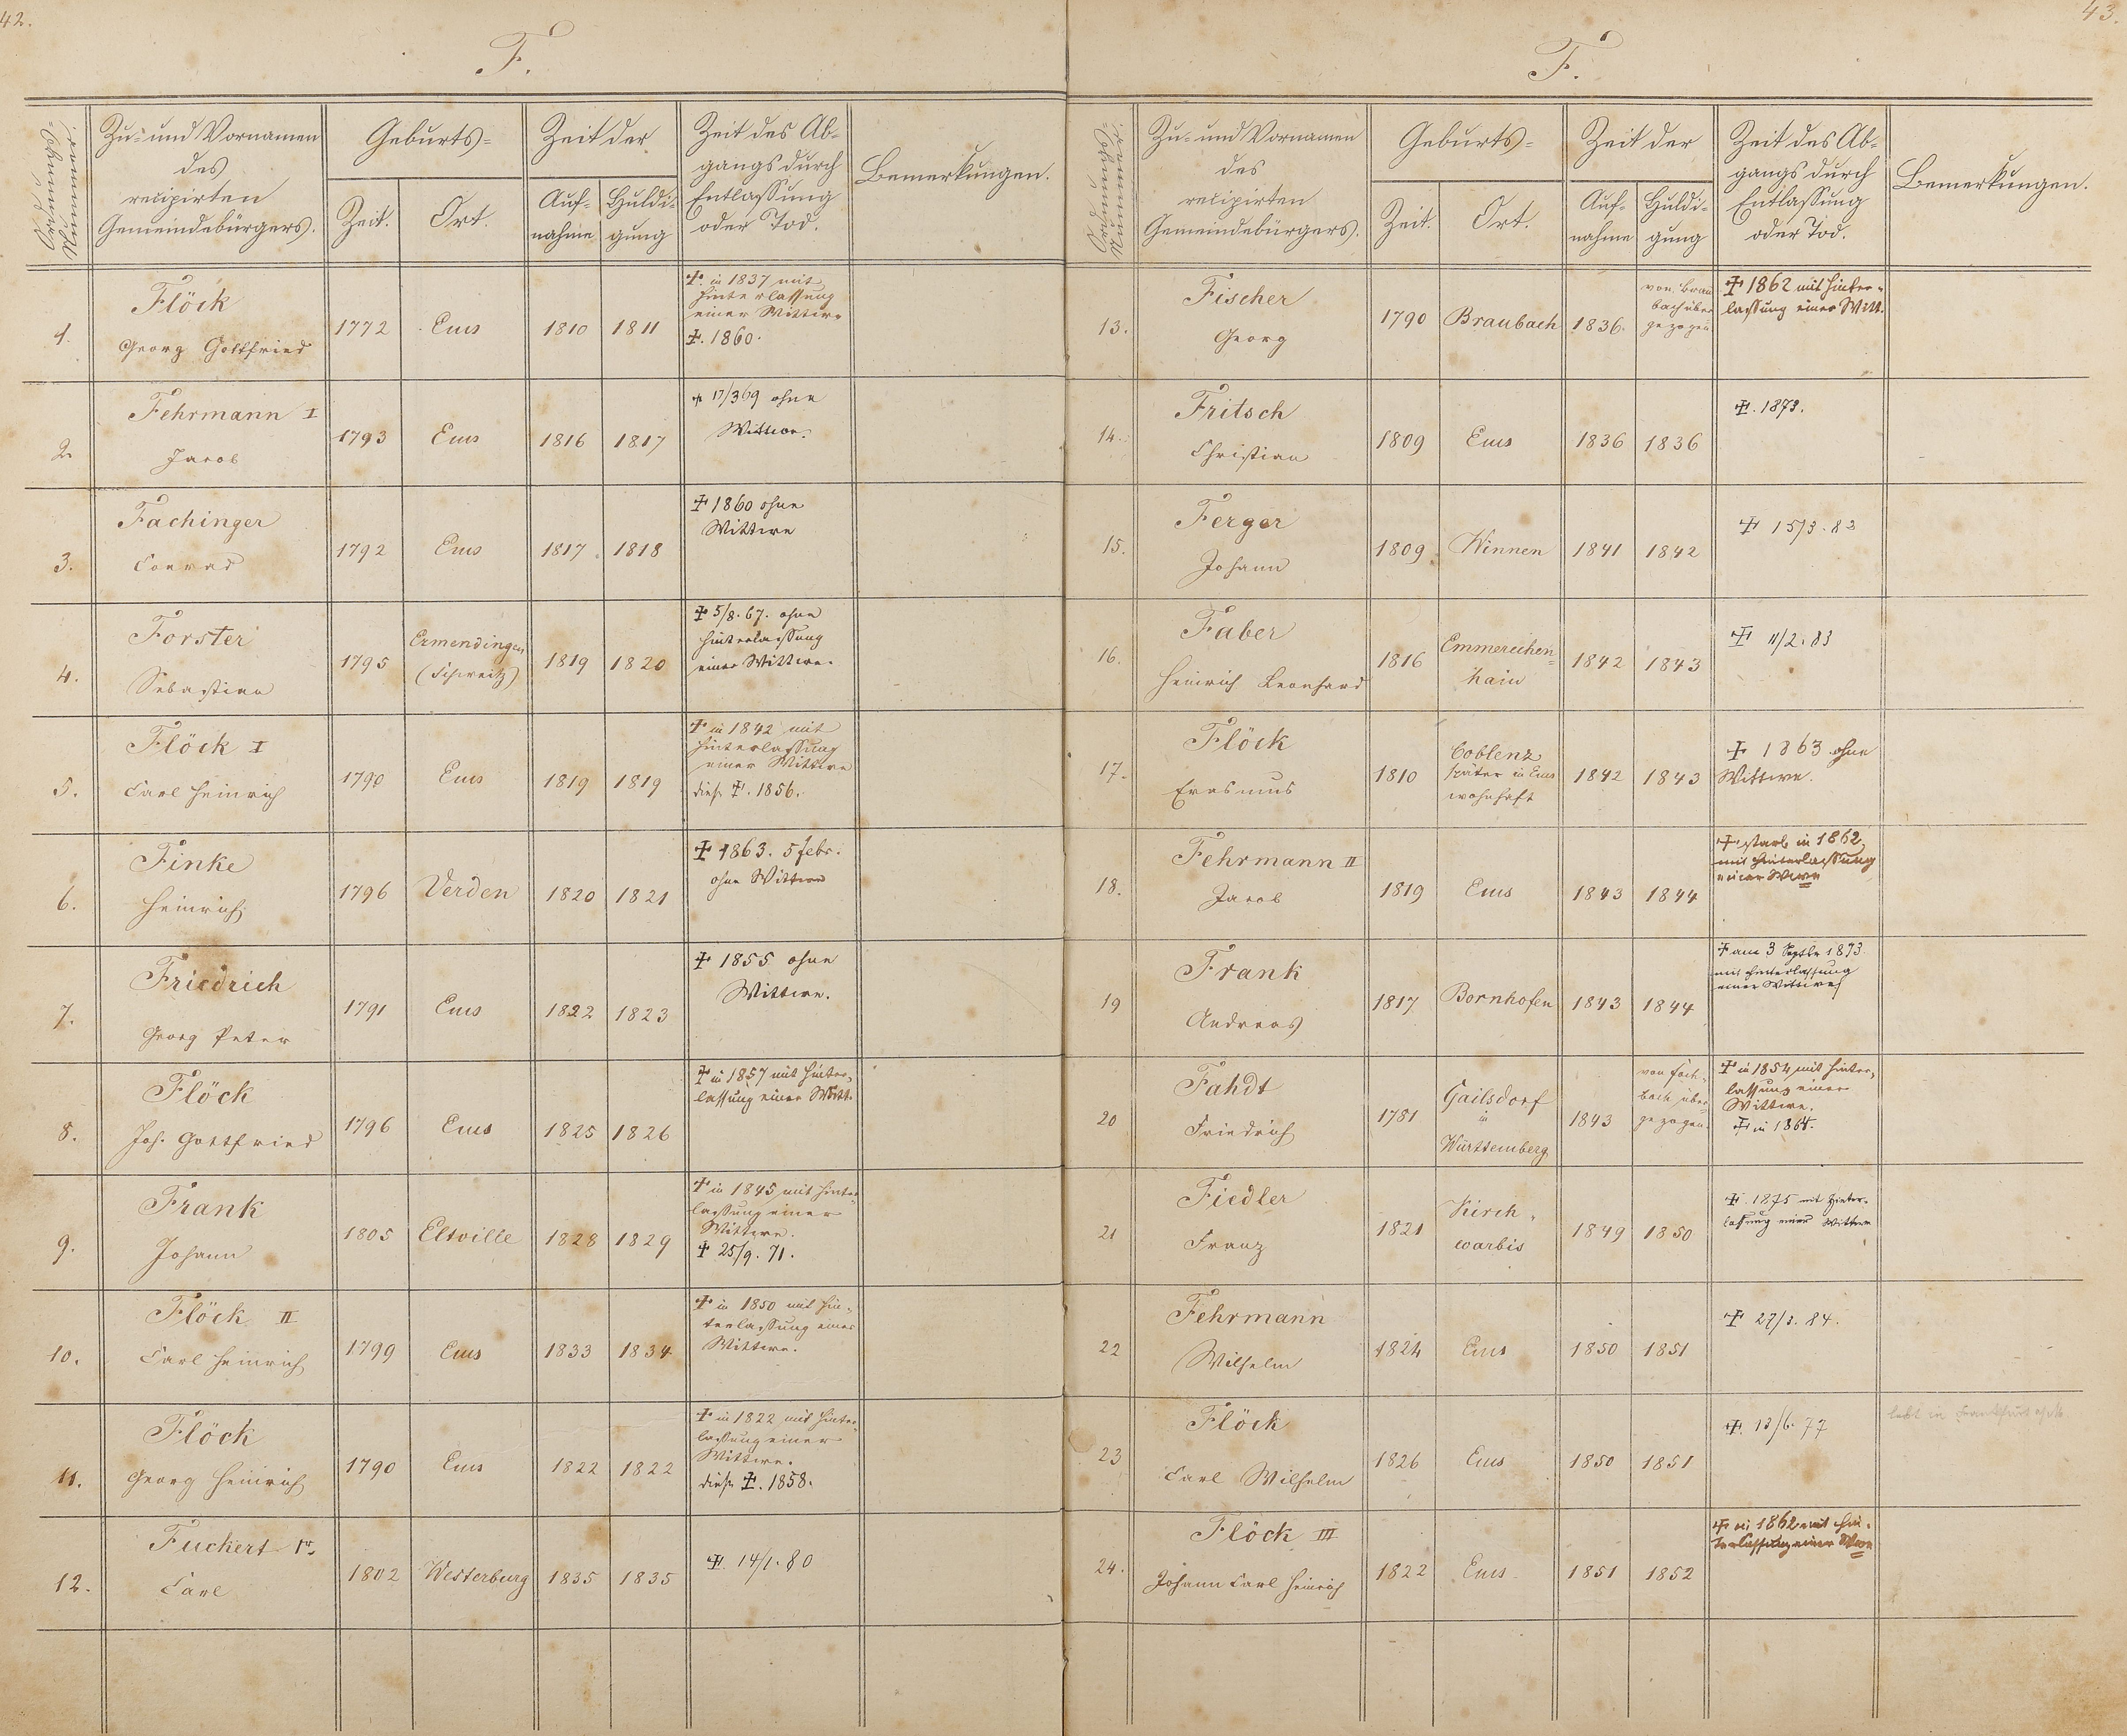 42.
F.
Ordnungs-
Nummer.
Zu- und Vornamen
des
recipirten
Gemeindebürgers.
Geburts-
Zeit.
Ort.
Zeit der
Auf-
nahme
Huldi-
gung
Zeit des Ab-
gangs durch
Entlassung
oder Tod.
Bemerkungen.
1.
Flöck
Georg Gottfried
1772
Ems
1810
1811
✝. in 1837 mit
Hinterlassung
einer Wittwe
✝. 1860.
2.
Fehrmann I
Jacob
1793
Ems
1816
1817
✝ 17/3 69 ohne
Wittwe.
3.
Fachinger
Conrad
1792
Ems
1817
1818
✝ 1860 ohne
Wittwe
4.
Forster
Sebastian
1795
Ermendingen
(Schweitz)
1819
1820
✝ 5/8. 67. ohne
Hinterlassung
einer Wittwe.
5.
Flöck I
Carl Heinrich
1790
Ems
1819
1819
✝ in 1842 mit
Hinterlassung
einer Wittwe
diese ✝. 1856.
6.
Finke
Heinrich
1796
Verden
1820
1821
✝ 1863. 5 Febr.
ohne Wittwe
7.
Friedrich
Georg Peter
1791
Ems
1822
1823
✝ 1855 ohne
Wittwe.
8.
Flöck
Joh. Gottfried
1796
Ems
1825
1826
✝ in 1857 mit Hinter-
lassung einer Wittt.
9.
Frank
Johann
1805
Eltville
1828
1829
✝ in 1845 mit Hinter-
lassung einer
Wittwe.
✝ 25/9. 71.
10.
Flöck II
Carl Heinrich
1799
Ems
1833
1834
✝ in 1850 mit Hin-
terlassung einer
Wittwe.
11.
Flöck
Georg Heinrich
1790
Ems
1822
1822
✝ in 1822 mit Hinter-
lassung einer
Wittwe.
diese ✝. 1858.
12.
Fuckert 1r
Carl
1802
Westerburg
1835
1835
✝. 14/1. 80
43.
F.
Ordnungs-
Nummer.
Zu- und Vornamen
des
recipirten
Gemeindebürgers.
Geburts-
Zeit.
Ort.
Zeit der
Auf-
nahme
Huldi-
gung
Zeit des Ab-
gangs durch
Entlassung
oder Tod.
Bemerkungen.
13.
Fischer
Georg
1790
Braubach
1836.
von Brau
bach über
gezogen
✝ 1862 mit Hinter-
lassung einer Witt.
14.
Fritsch
Christian
1809
Ems
1836
1836
✝. 1873.
15.
Ferger
Johann
1809
Winnen
1841
1842
✝ 15/3. 83
16.
Faber
Heinrich Leonhard
1816
Emmerichen-
hain
1842
1843
✝ 11/2. 83
17.
Flöck
Erasmus
1810
Coblenz
später in Ems
wohnhaft
1842
1843
✝ 1863 ohne
Wittwe.
18.
Fehrmann II
Jacob
1819
Ems
1843
1844
✝ starb in 1862
mit Hinterlassung
einer Wwe
19
Frank
Andreas
1817
Bornhofen
1843
1844
✝ am 3 Septbr 1873.
mit Hinterlassung
einer Wittwe
20
Fahdt
Friedrich
1781
Gailsdorf
in
Württemberg
1843
von Fach-
bach über-
gezogen
✝ in 1854 mit Hinter-
lassung einer
Wittwe.
✝ in 1864.
21
Fiedler
Franz
1821
Kirch-
worbis
1849
1850
✝. 1875 mit Hinter-
lassung einer Wittwe
22
Fehrmann
Wilhelm
1824
Ems
1850
1851
✝ 27/3. 84.
23
Flöck
Carl Wilhelm
1826
Ems
1850
1851
✝. 13/6. 77
lebt in Frankfurt
24.
Flöck III
Johann Carl Heinrich
1822
Ems
1851
1852
✝ in 1862 mit Hin-
terlassung einer Wwe